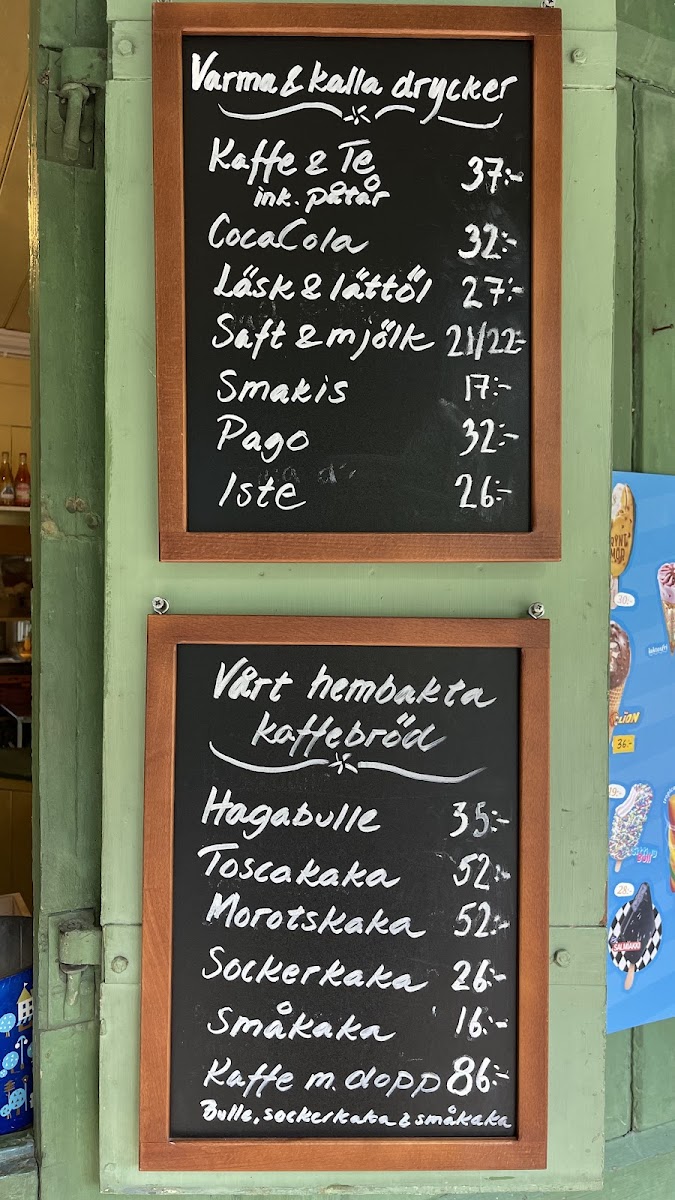 Varma & kalla drycker
Kaffe & Te 37:-
ink. påtår
CocaCola 32:-
Läsk & lättöl 27:-
Saft & mjölk 21/22:-
Smakis 17:-
Pago 32:-
Iste 26:-
Vårt hembakta
kaffebröd
Hagabulle 35:-
Toscakaka 52:-
Morotskaka 52:-
Sockerkaka 26:-
Småkaka 16:-
Kaffe m. dopp 86:-
Bulle, sockerkaka & småkaka
30:-
LION
36:-
28:-
SALMIAKKI